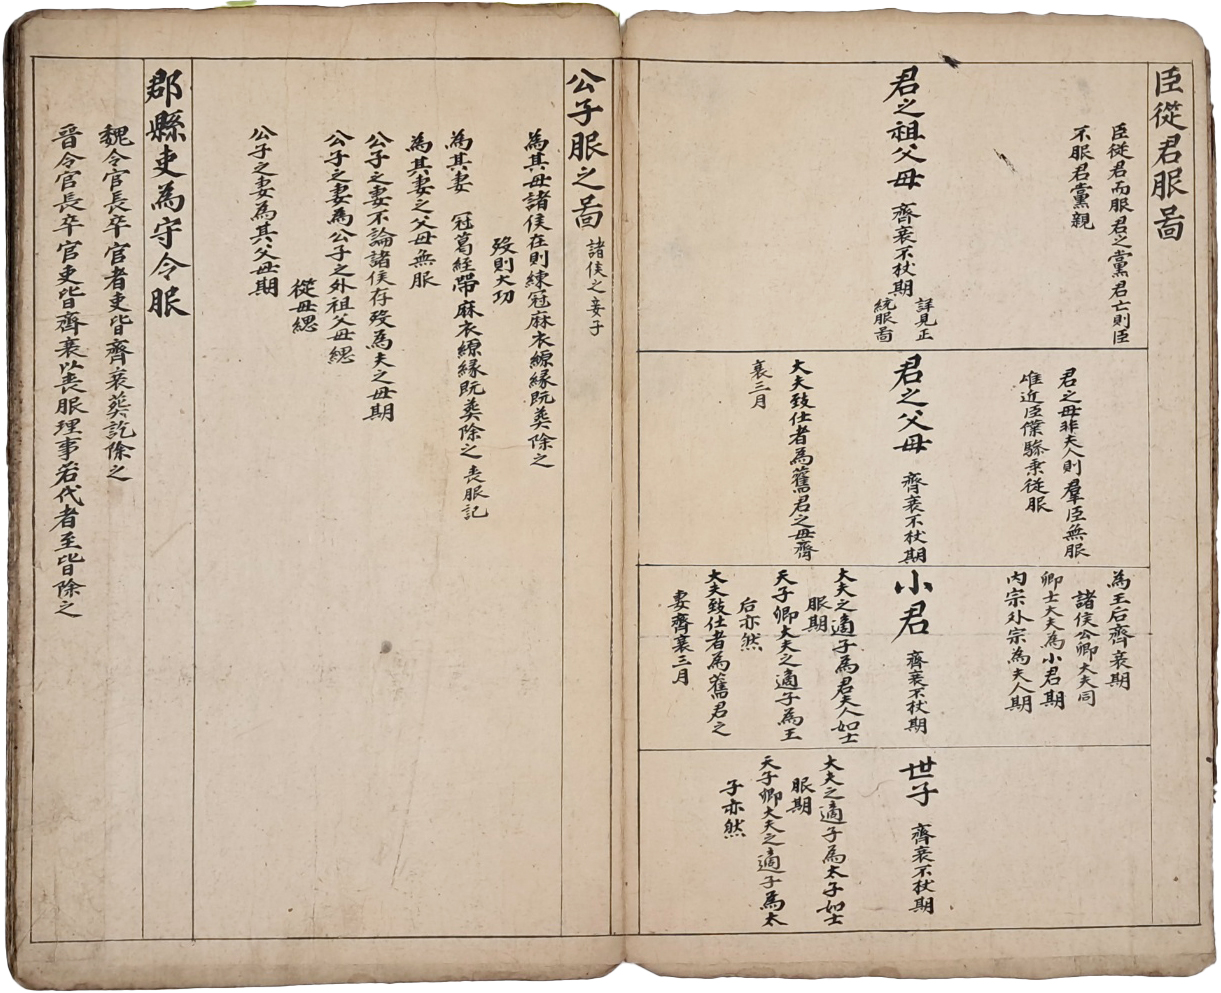 臣從君服啚
臣從君而服君之黨君亡則臣
不服君黨親
君之祖父母 齊衰不杖期
詳見正
統服啚
君之母非夫人則羣臣無服
唯近臣僕驂乗從服
君之父母 齊衰不杖期
大夫致仕者為舊君之母齊
衰三月
為王后齊衰期
諸侯公卿大夫同
卿士大夫為小君期
内宗外宗為夫人期
小君 齊衰不杖期
大夫之適子為君夫人如士
服期
天子卿大夫之適子為王
后亦然
大夫致仕者為舊君之
妻齊衰三月
世子 齊衰不杖期
大夫之適子為太子如士
服期
天子卿大夫之適子為太
子亦然
公子服之啚 諸侯之妾子
為其母諸侯在則練冠麻衣縓緣既葬除之
殁則大功
為其妻 冠葛絰帶麻衣縓緣既葬除之 喪服記
為其妻之父母無服
公子之妻不論諸侯存殁為夫之母期
公子之妻為公子之外祖父母緦
從母緦
公子之妻為其父母期
郡縣吏為守令服
魏令官長卒官者吏皆齊衰葬訖除之
晉令官長卒官吏皆齊衰以喪服理事若代者至皆除之